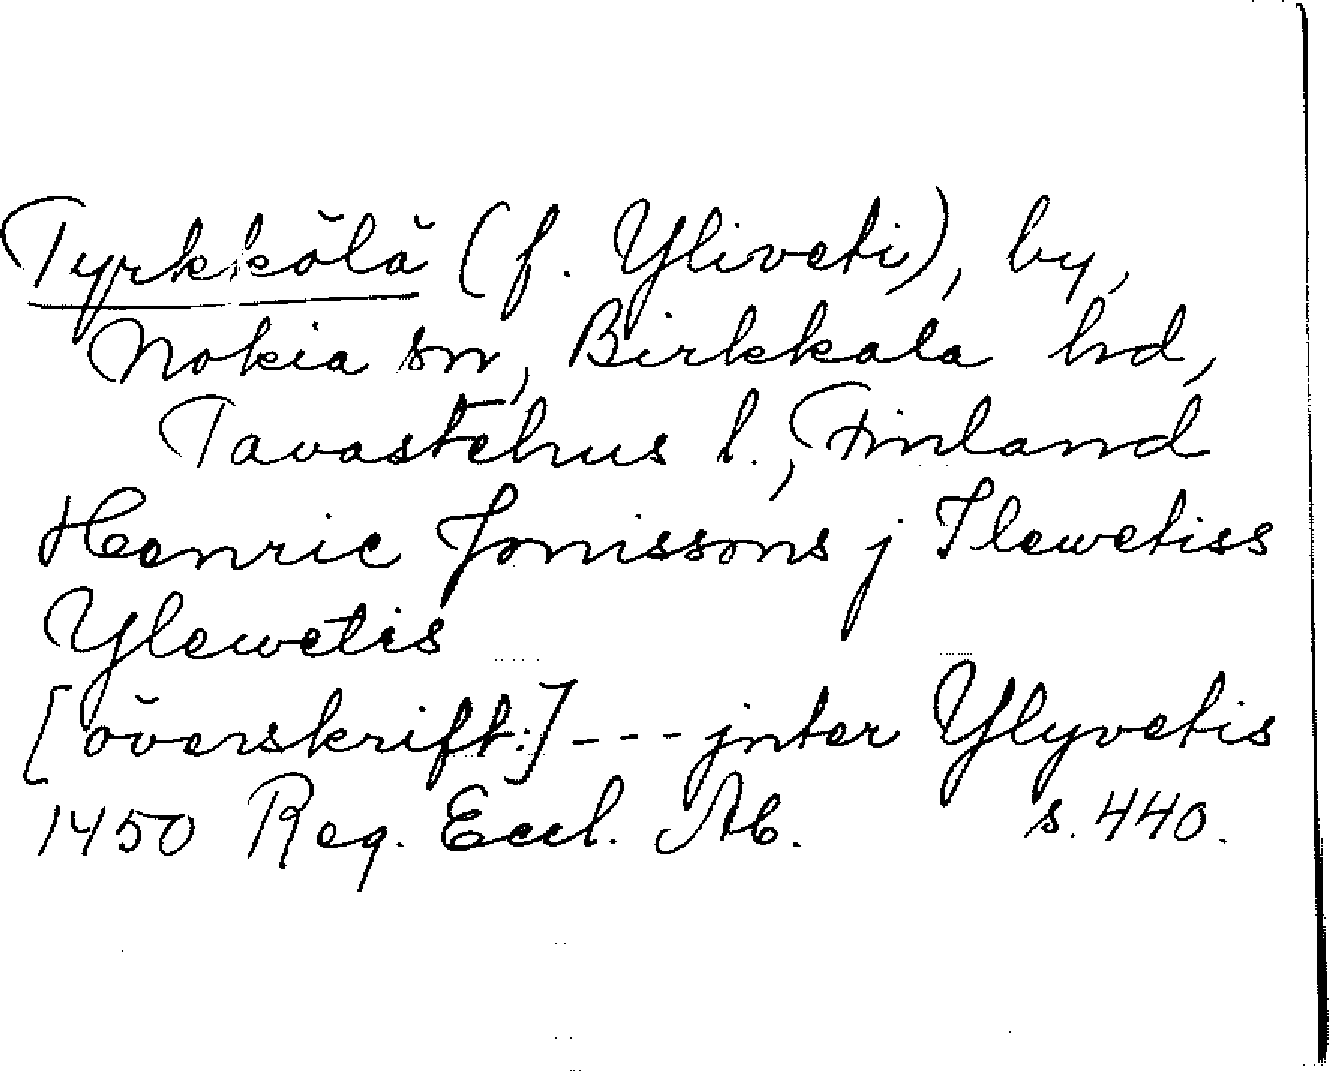 Tyrkkölä (f. Yliveti), by,
Nokia sn, Birkkala hd,
Tavastehus l., Finland
Henric Jonissons j Ilewetiss
Ylewetis
[överskrift:] --- jnter Ylyvetis
1450 Reg. Eccl. Ab. s. 440.